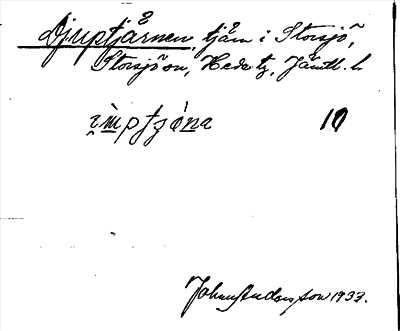 Djuptjärnen, tjärn i Storsjö,
Storsjö sn, Hede tg, Jämtl. l.
10
Johan Andersson 1933.